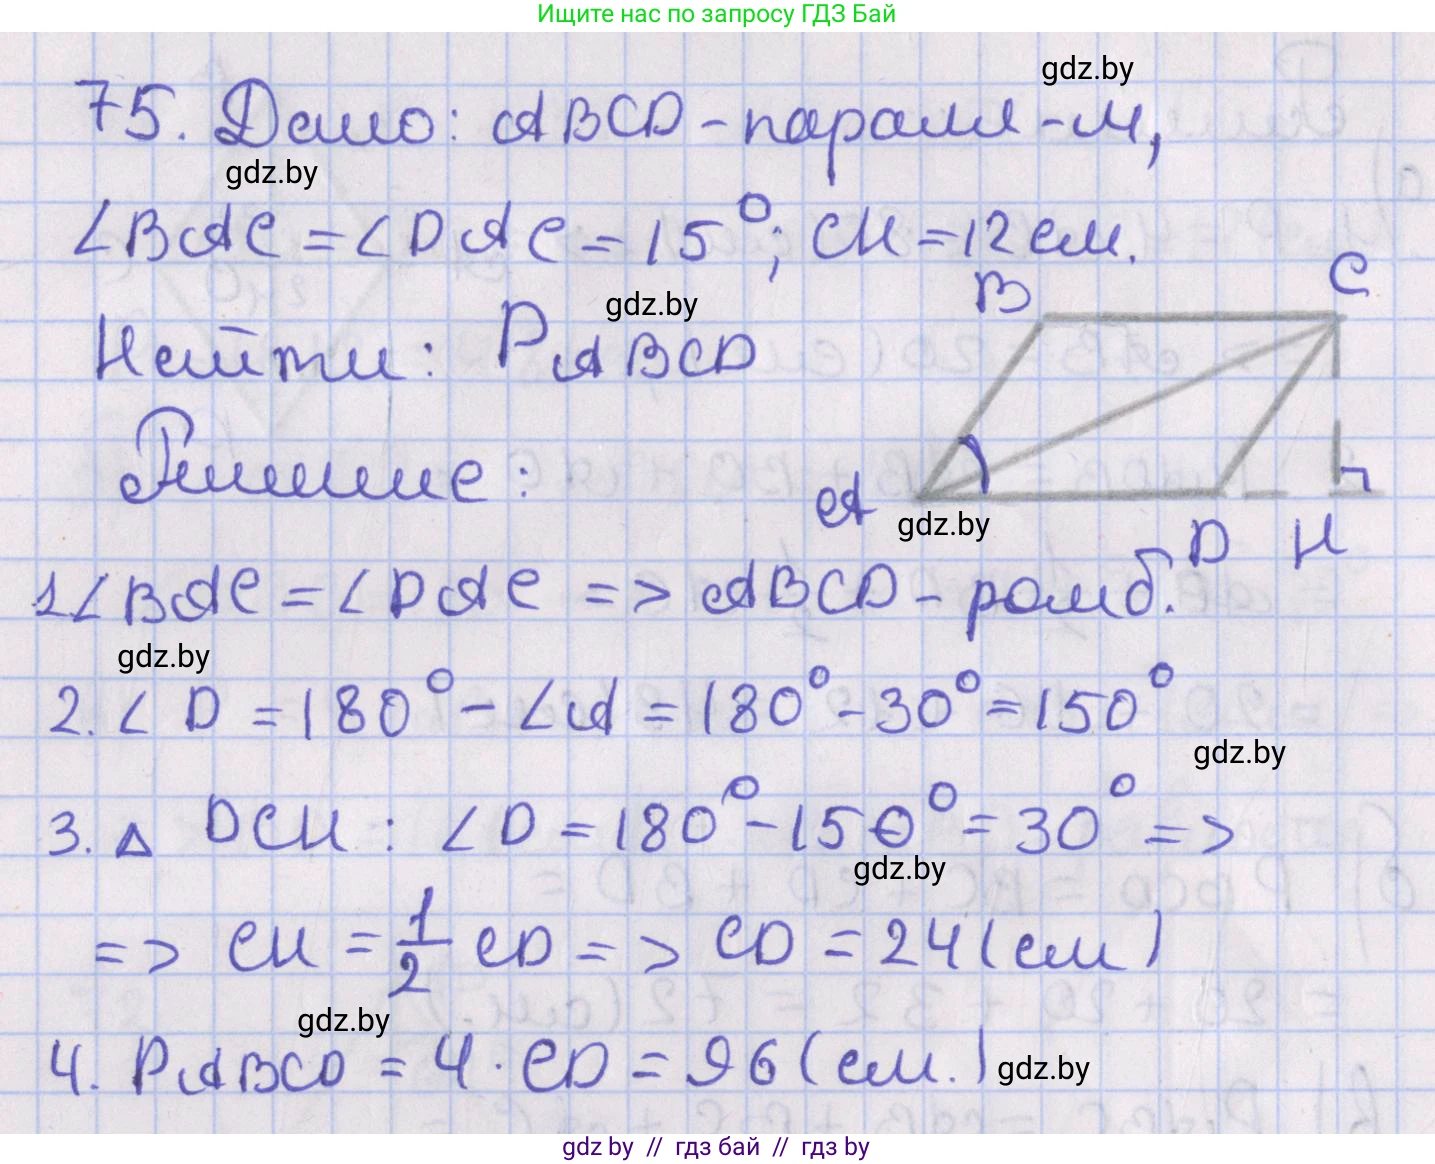 Ищите нас по запросу ГДЗ Бай
gdz.by
75. Дано: ABCD - паралл-м,
gdz.by
∠BAC = ∠DAC = 15°; CH = 12 см.
gdz.by
B C
Найти: P ABCD
Решение:
A
gdz.by
D H
1. ∠BAC = ∠DAC => ABCD - ромб.
gdz.by
2. ∠D = 180° - ∠A = 180° - 30° = 150°
gdz.by
3. △ DCH: ∠D = 180° - 150° = 30° =>
gdz.by
=> CH = 1/2 CD => CD = 24 (см)
gdz.by
4. P ABCD = 4 · CD = 96 (см.)
gdz.by
gdz.by // гдз бай // гдз by